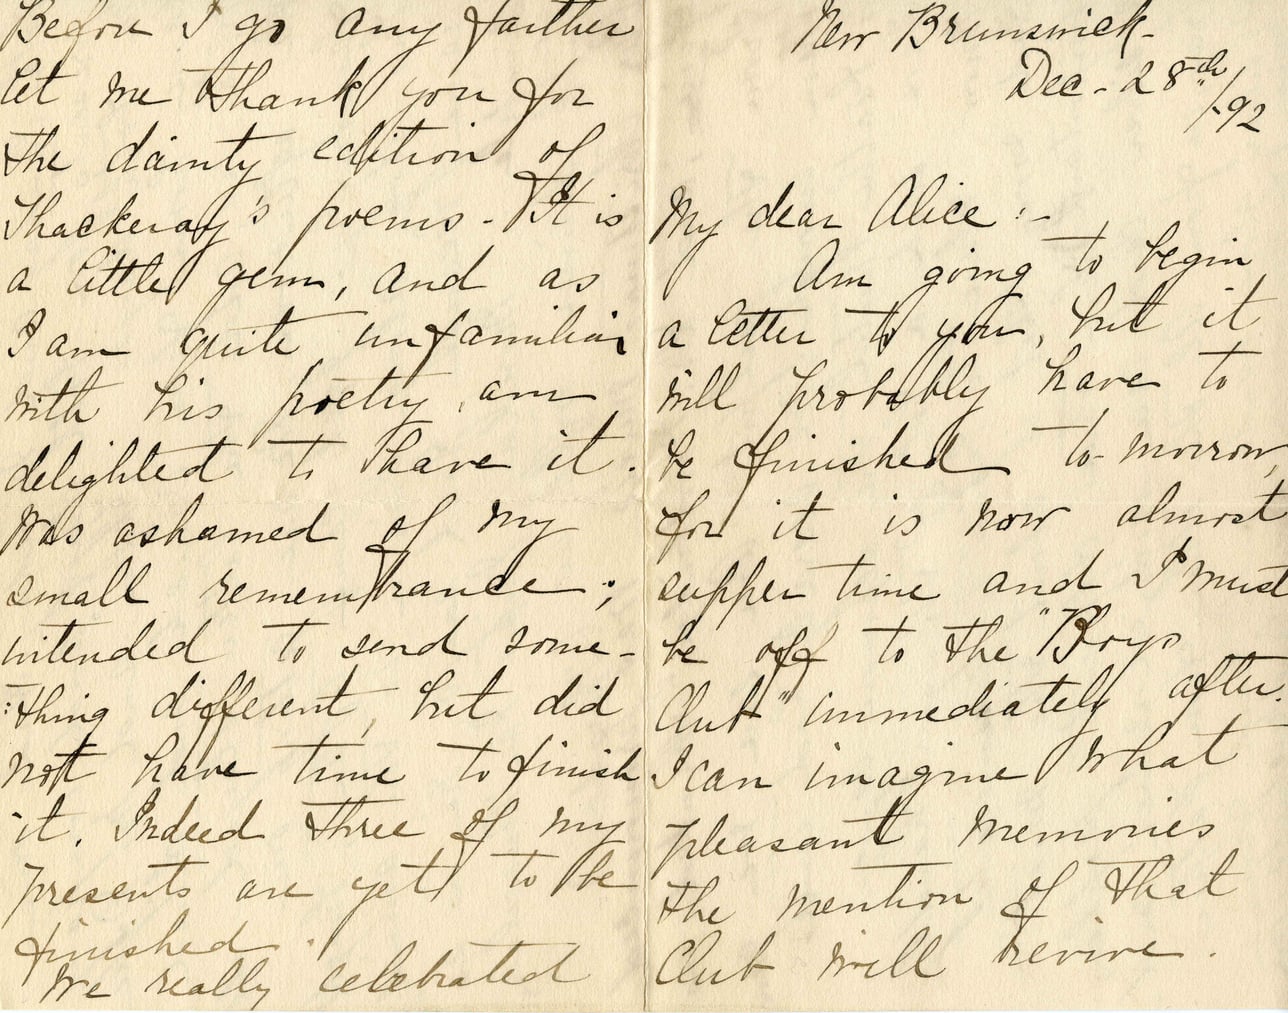 New Brunswick-
Dec - 28th/-92
My dear Alice :-
Am going to begin
a letter to you, but it
will probably have to
be finished to-morrow,
for it is now almost
supper time and I must
be off to the "Boys
Club" immediately after.
I can imagine what
pleasant memories
the mention of that
Club will revive.
Before I go any farther
let me thank you for
the dainty edition of
Thackeray's poems - It is
a little gem, and as
I am quite unfamiliar
with his poetry, am
delighted to have it.
Was ashamed of my
small remembrance;
intended to send some-
:thing different, but did
not have time to finish
it. Indeed three of my
presents are yet to be
finished.
We really celebrated